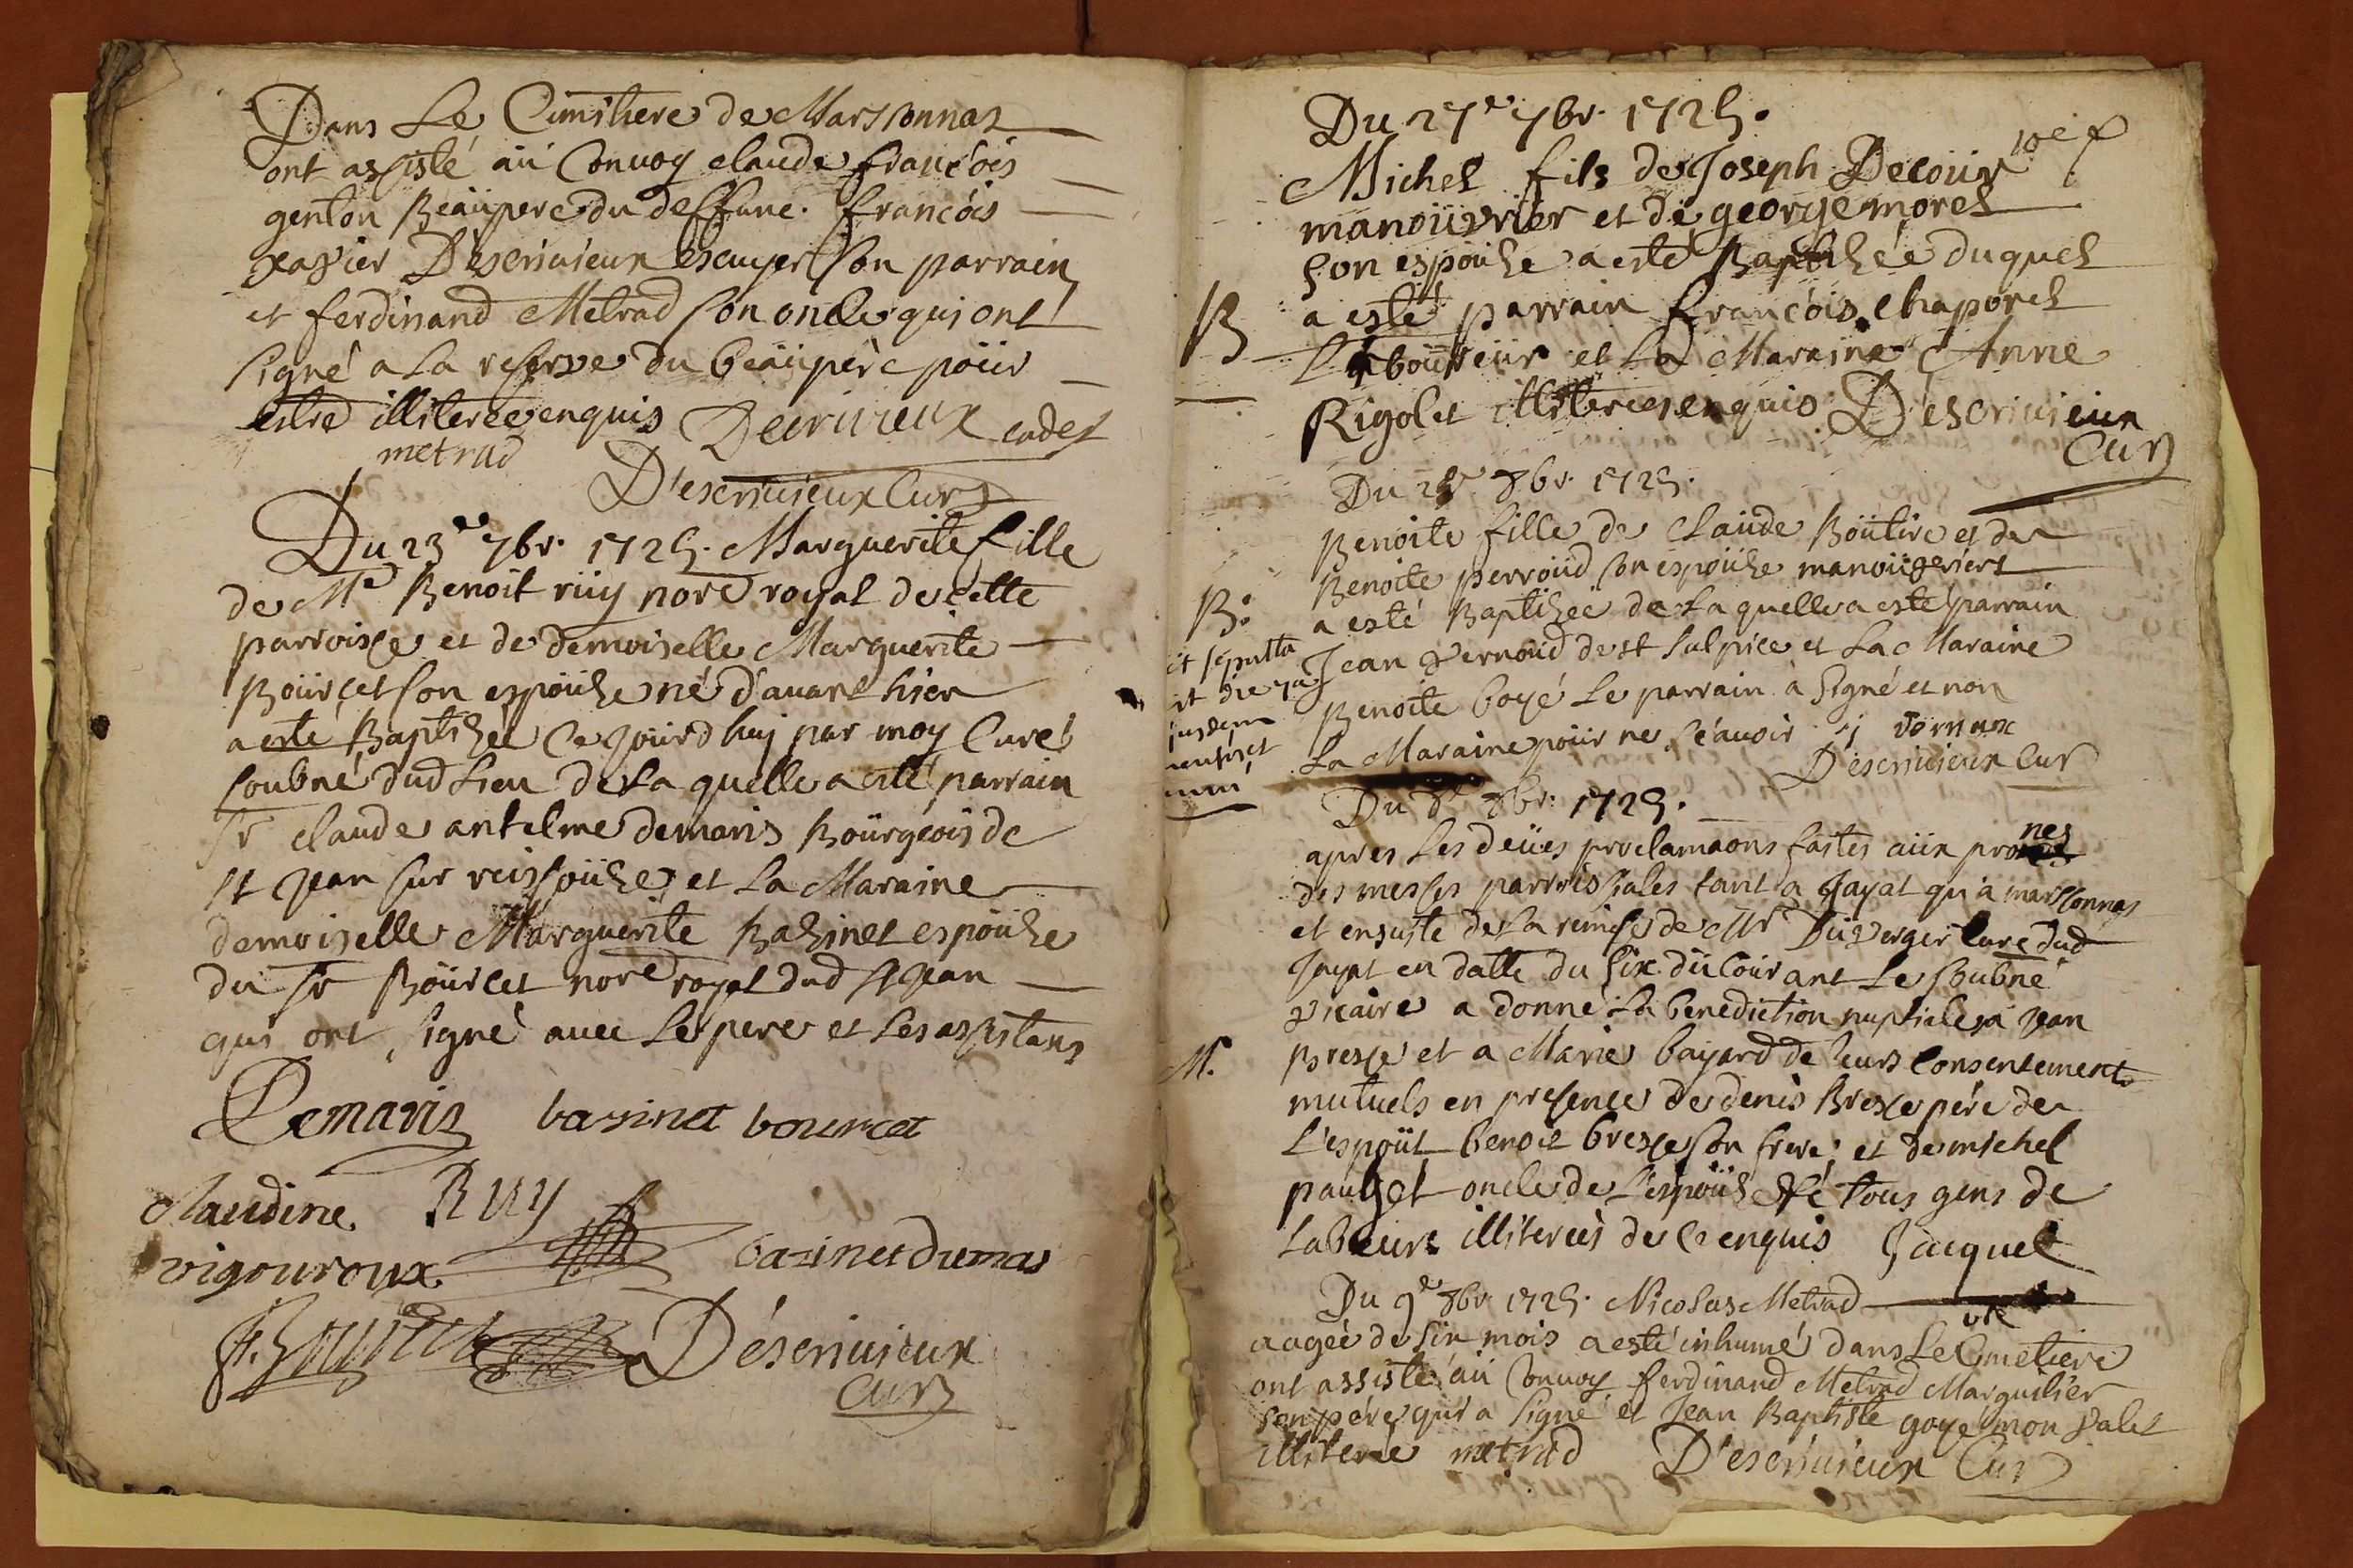 Dans Le Cimitiere de Marsonnas
ont assisté aü Conuoy claude francóis
genton Beaüpere du deffunc. francóis
xavier D'escriuieux escuyer son parrain
et ferdinand Metrad son oncle qui ont
signé a La reserve du beaüpére poür
estre illiteree enquis Decrivieux cadet
metrad
D'escriuieux Curé
Du 23e 7br. 1725. Marguerite fille
de Me Benoit rüy nore royal de cette
parroisse et de demoiselle Marguerite
Boürcet son espoüze né d'auant hier
a esté Baptizeé Ce jourd huy par moy Curé
soubné dud Lieu de La quelle a esté parrain
sr claude antelme demaris Boürgeois de
st jean sur reissoüze et La Maraine
demoiselle Marguerite Bazinet espoüze
du sr Boürcet nore royal dud st jean
qui ont signé auec Le pere et Les assistans
Demaris bazinet bourcet
claudine RUY
vigouroux bazinet dumas
D'éscriuieux
Curé
Du 27e 7br. 1725.
Michel fils de Joseph Decoür
manoüvrier et de george morel
son espoüze a esté Baptizée duquel
B a esté parrain francóis Chaporel
Laboureür et La Maraine Anne
Rigolet illiterees enquis D'escriuieux
Curé
Du 8br. 1725.
Benoite fille de Claüde Boütire et de
Benoite perroud son espoüze manoüvriers
B. a esté Baptizeé de La quelle a esté parrain
Jean vernoüd de st sulpice et La Maraine
et sepulta
Benoite boyé Le parrain à signé et non
La Maraine poür ne scéauoir j vernoux
D'escriuieux Curé
Du 8e 8br. 1725.
apres Les deües proclamaons faites aüx prones
des messes parroissiales tant a Jayat qu'a marsonnas
et ensuite de La remise de Mr Düverger Curé dud
Jayat en datte du six dü Courant Le soubné
vicaire a donné La benediction nuptiale a jean
M. Bresse et a Marie bayard de leurs Consentements
mutuels en presence de denis Bresse pére de
L'espoüx benoit bresse son frere et de michel
pauget oncle de L'espoüsée tous gens de
Labeurs illiterés de Ce enquis Jacquet
Du 9e 8br 1725. Nicolas Metrad
aagée de six mois a esté inhumé dans Le Cimetiere
ont assisté aü Conuoy ferdinand Metrad Marguilier
son pére qui a signé et Jean Baptiste goyé mon valet
illiteré metrad D'escriuieux Curé